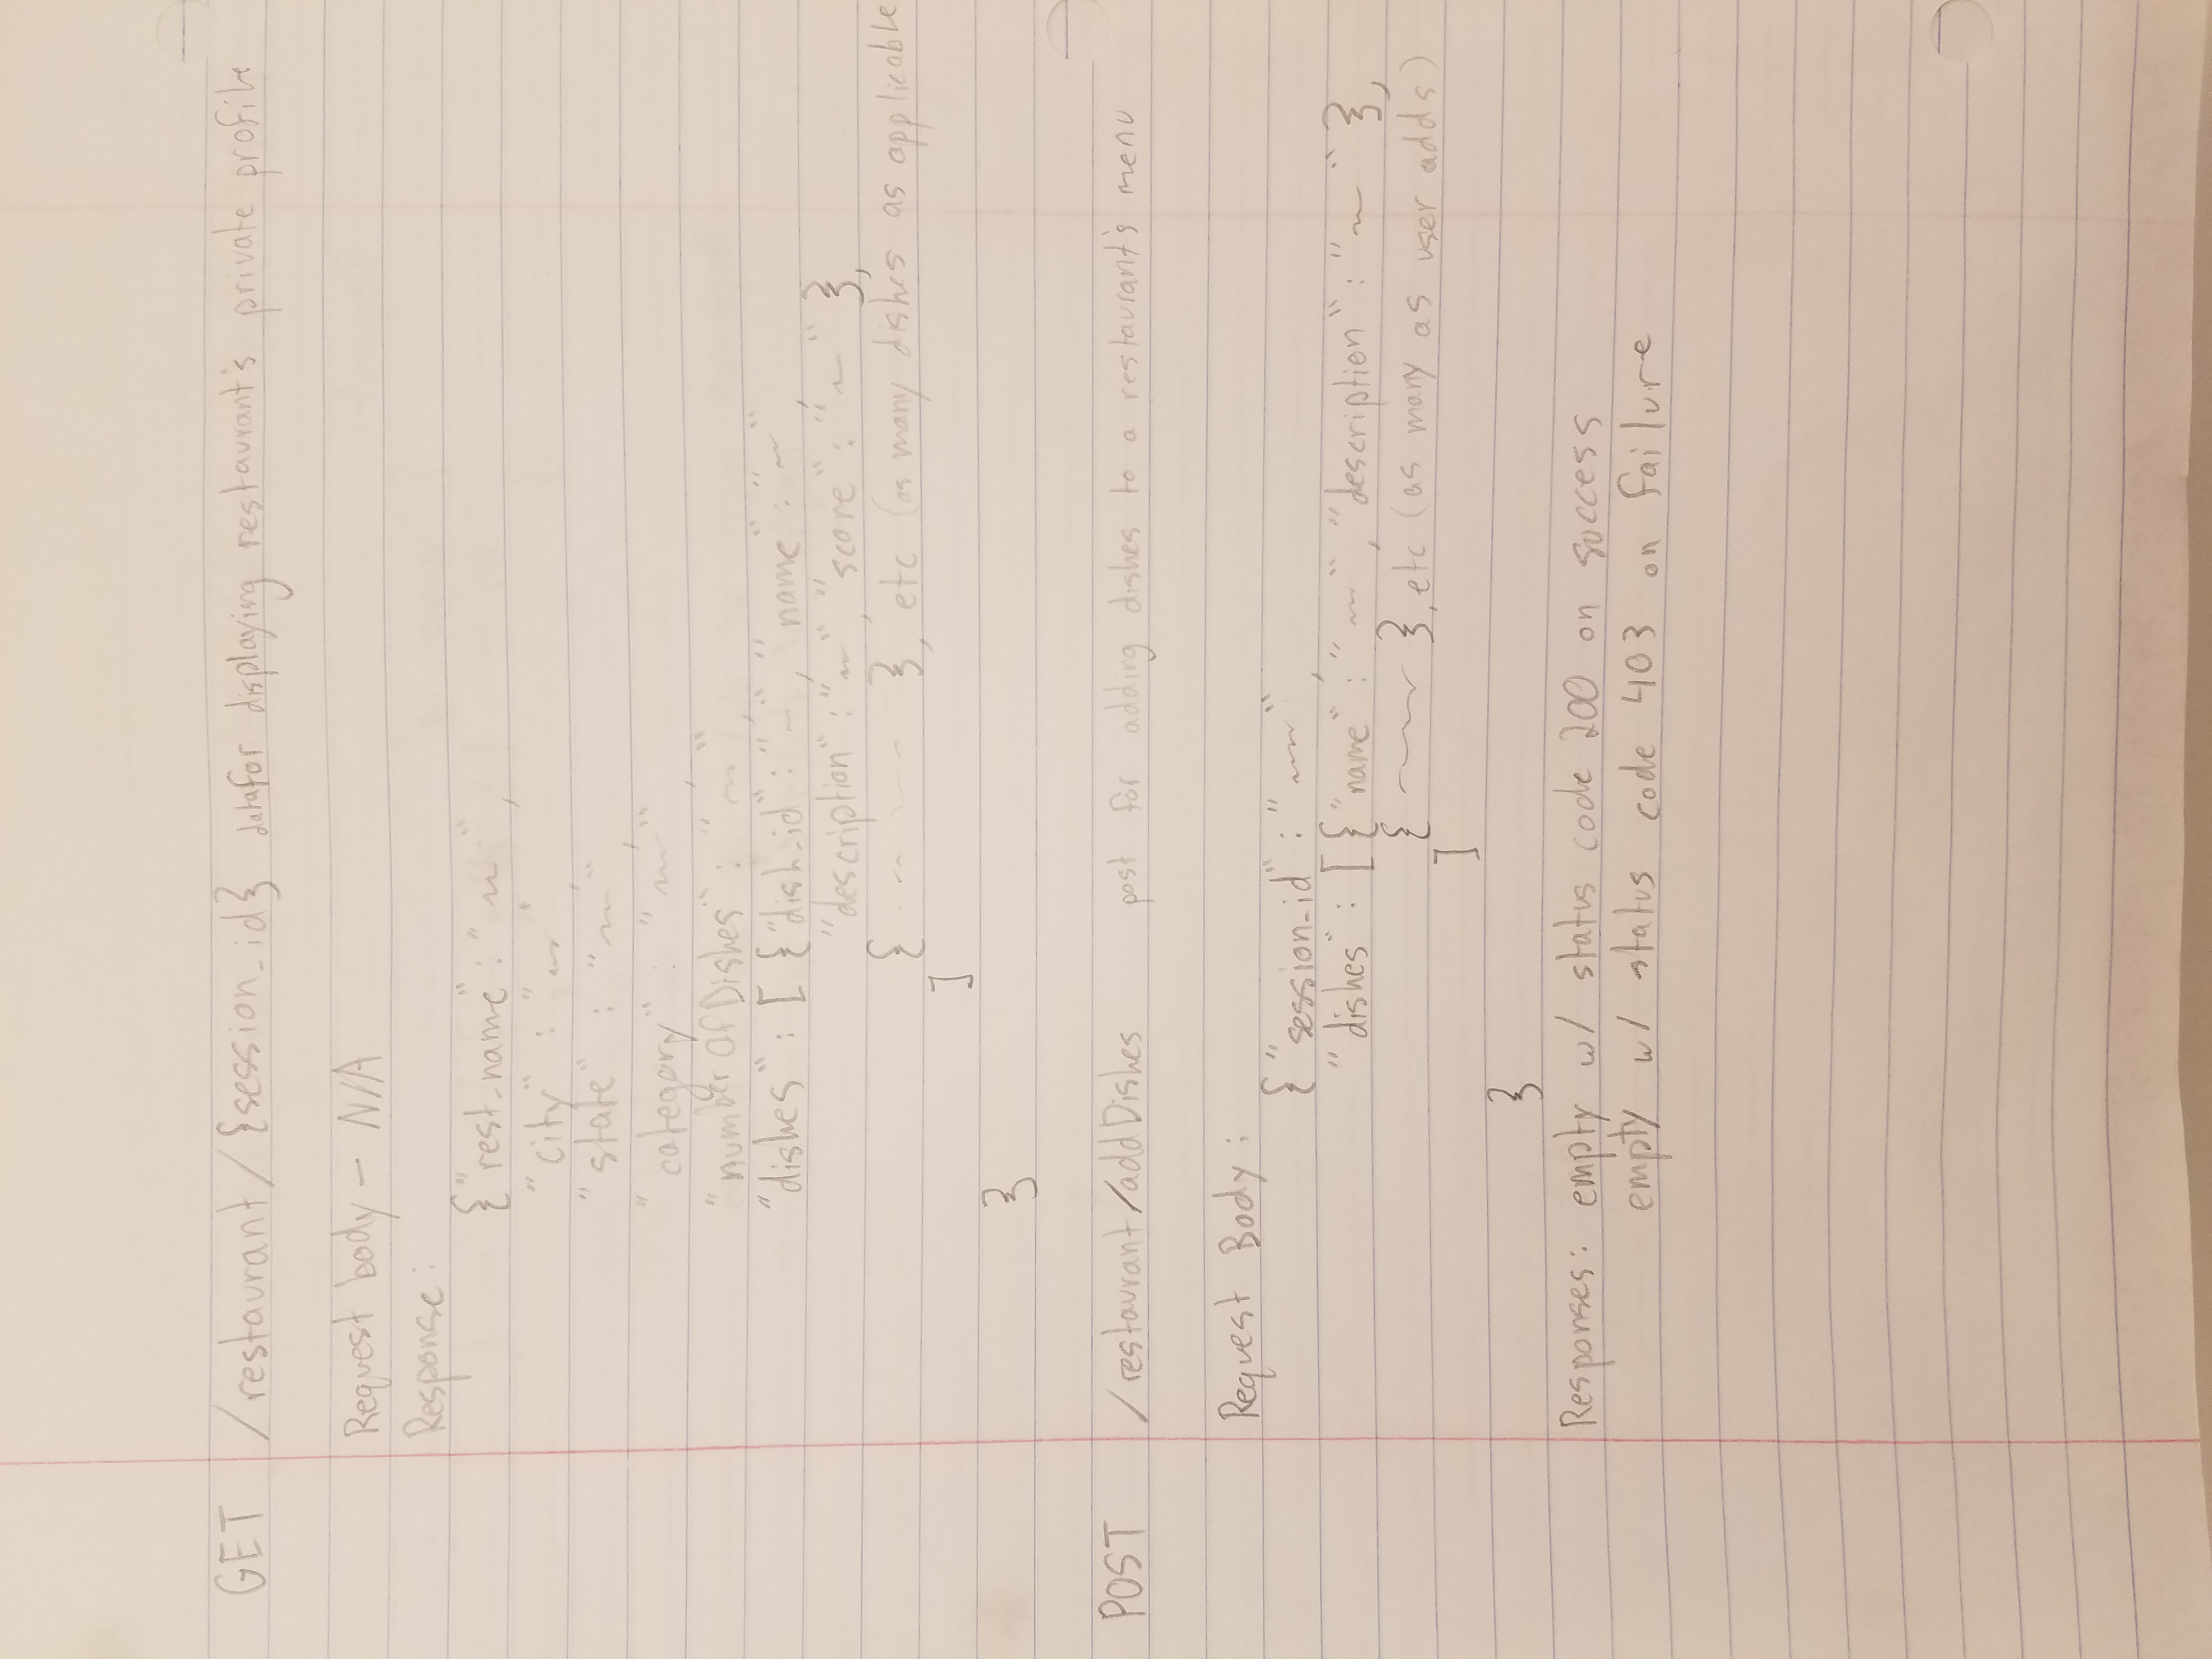 GET /restaurant/{session_id} data for displaying restaurant's private profile
Request body - N/A
Response:
{"rest_name": "~",
"city" : "~",
"state" : "~",
"category" : "~",
"numberOfDishes" : "~",
"dishes" : [ {"dish_id" : "~", "name" : "~",
"description" : "~", "score" : "~" },
{ ~ ~ ~ }, etc (as many dishes as applicable
]
}
POST /restaurant/addDishes post for adding dishes to a restaurant's menu
Request Body :
{ "session_id" : "~",
"dishes" : [ { "name" : "~", "description" : "~" },
{ ~ }, etc (as many as user adds)
]
}
Responses: empty w/ status code 200 on success
empty w/ status code 403 on failure